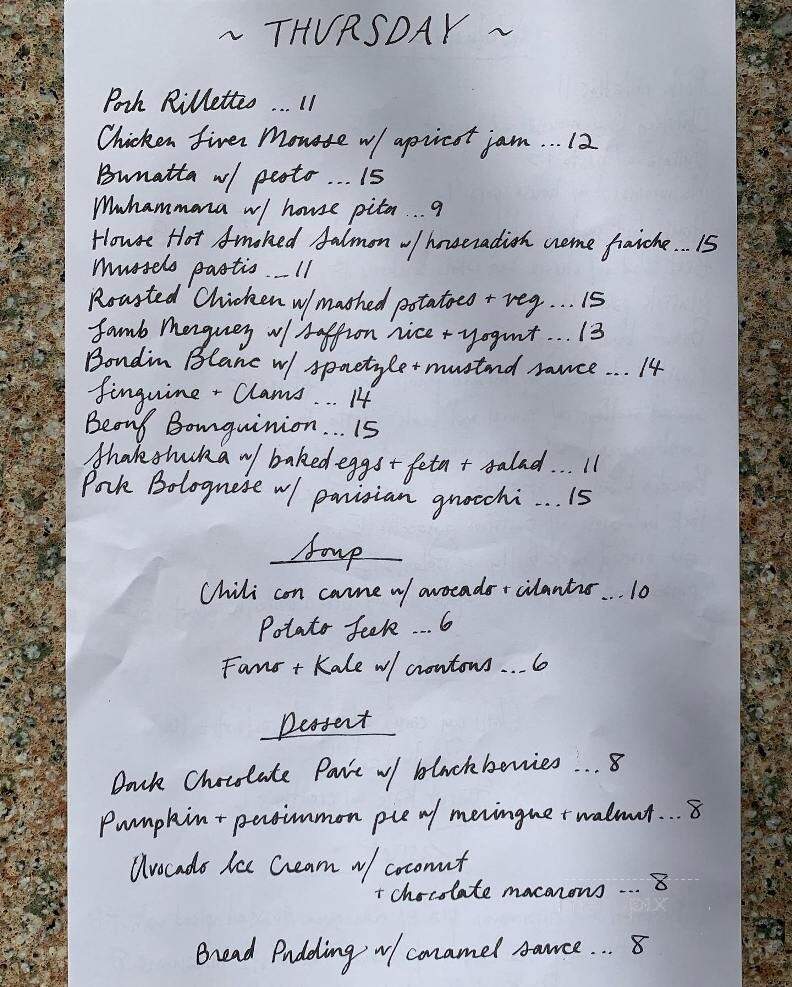 ~ THURSDAY ~
Pork Rillettes ... 11
Chicken Liver Mousse w/ apricot jam ... 12
Burratta w/ pesto ... 15
Muhammara w/ house pita ... 9
House Hot Smoked Salmon w/ horseradish creme fraiche ... 15
Mussels pastis ... 11
Roasted Chicken w/ mashed potatoes + veg ... 15
Lamb Merguez w/ saffron rice + yogurt ... 13
Boudin Blanc w/ spaetzle + mustard sauce ... 14
Linguine + Clams ... 14
Beouf Bourguinion ... 15
Shakshuka w/ baked eggs + feta + salad ... 11
Pork Bolognese w/ parisian gnocchi ... 15
Soup
Chili con carne w/ avocado + cilantro ... 10
Potato Leek ... 6
Farro + Kale w/ croutons ... 6
Dessert
Dark Chocolate Pavé w/ blackberries ... 8
Pumpkin + persimmon pie w/ meringue + walnut ... 8
Avocado Ice Cream w/ coconut
+ chocolate macarons ... 8
Bread Pudding w/ caramel sauce ... 8